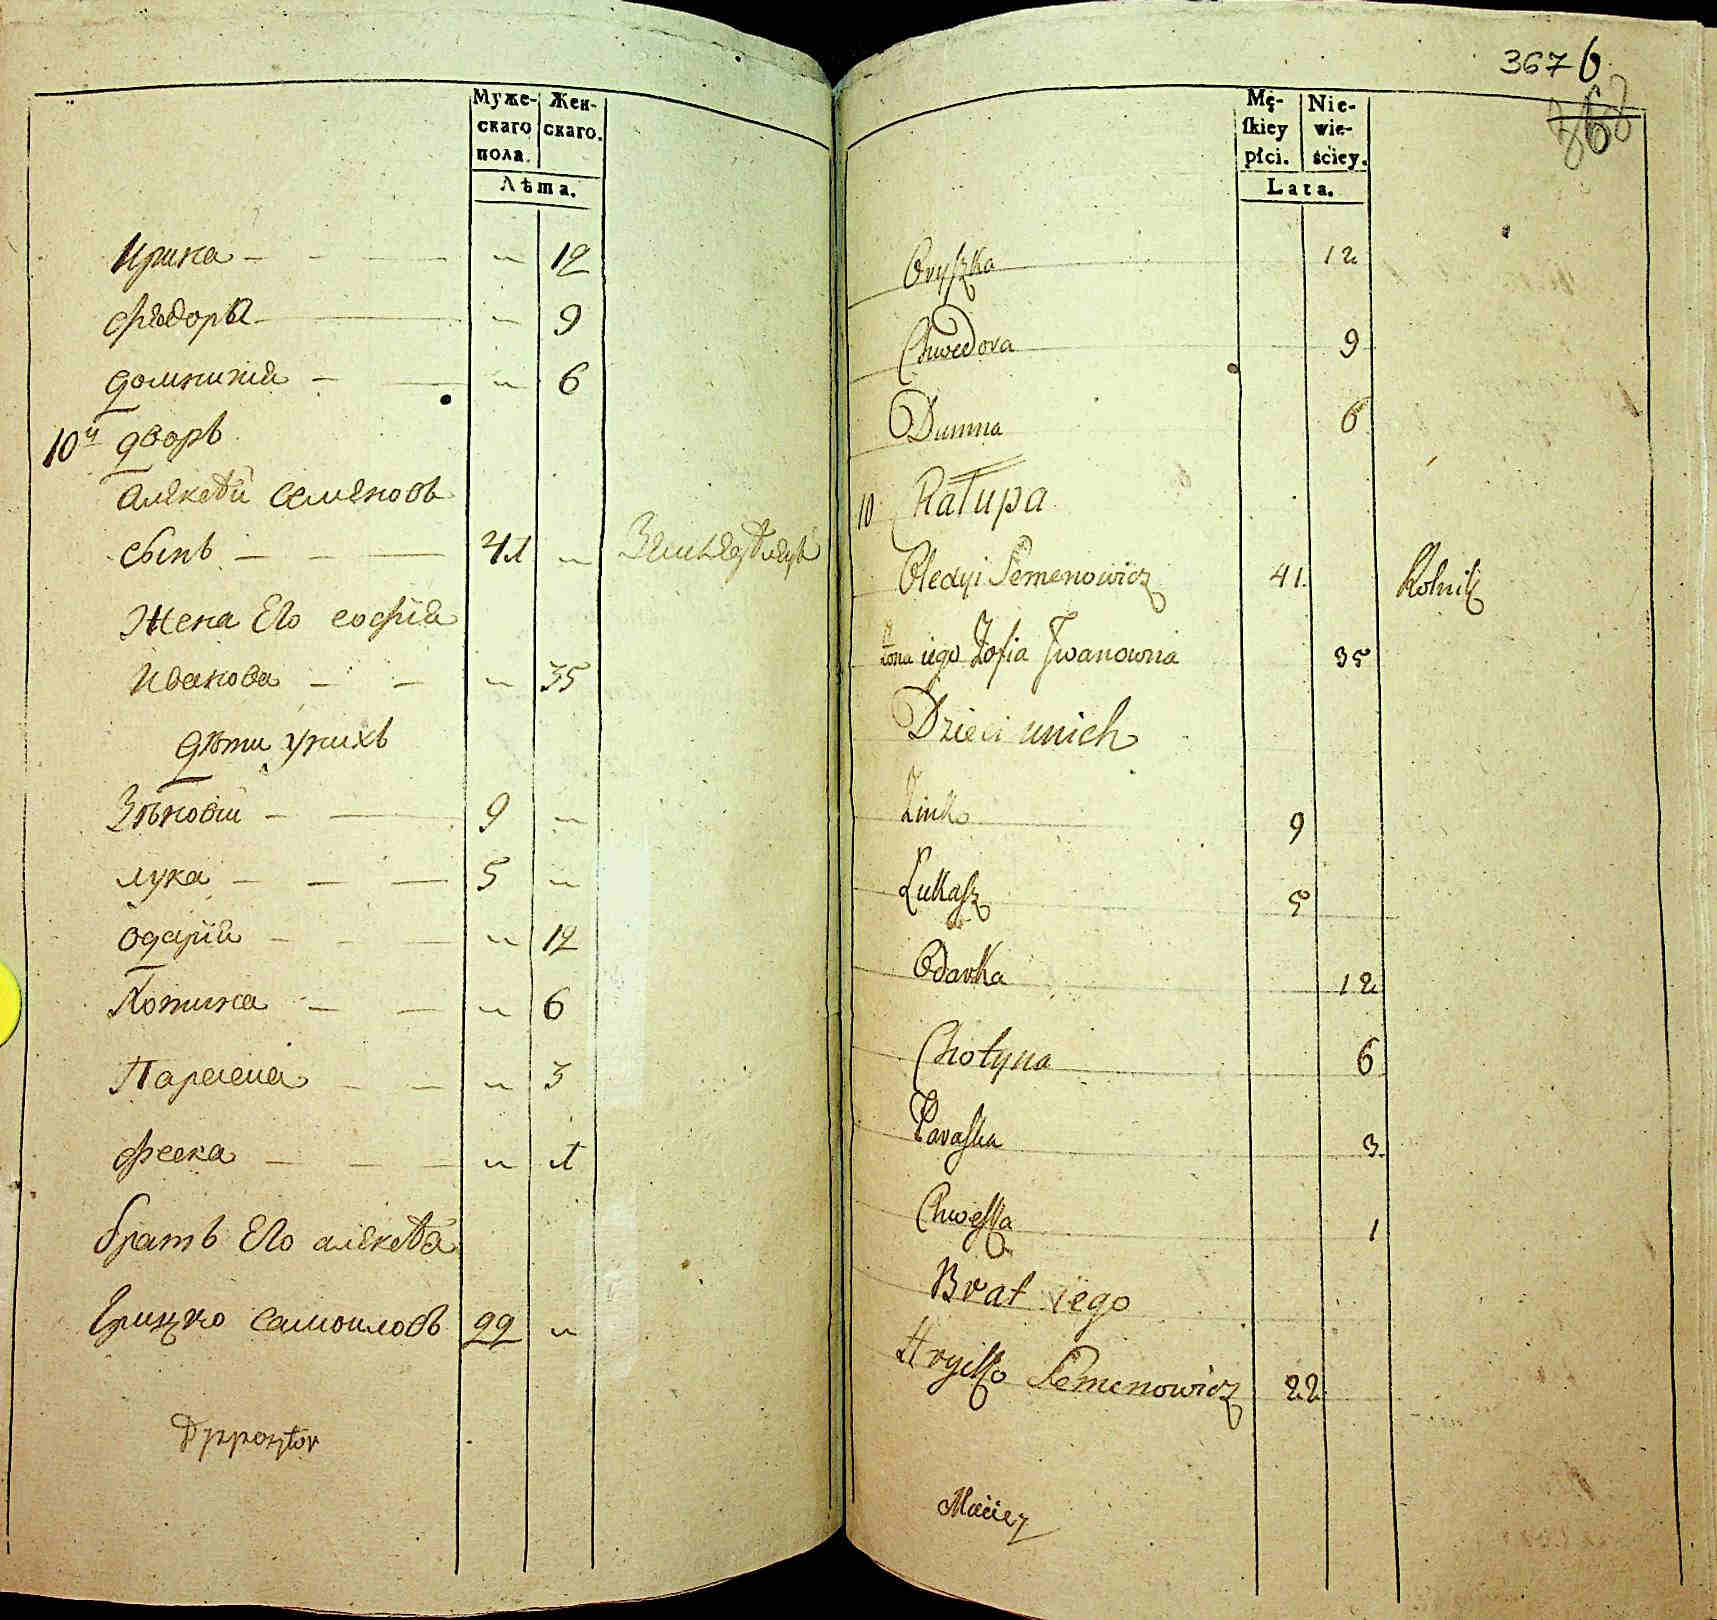 Муже-
скаго
пола.
Жен-
скаго.
Лѣта.
Ирина — — — — „ 12
Фѣдора — — „ 9
Домникия — — „ 6
10й дворъ
Алѣксѣй Семѣновъ
сынъ — — — 41 „ Землѣдѣлецъ
Жена Его Софiя
Иванова — — „ 35
дѣти унихъ
Зѣновiи — — 9 „
Лука — — — 5 „
Одарiя — — — „ 12
Хотина — — „ 6
Параска — — „ 3
Феска — — — „ 1
братъ Его Алѣксѣя
Грицко Самоиловъ 22 „
3676
368
Mę-
skiey
płci.
Nie-
wie-
ściey.
Lata.
Oryszka 12
Chwedora 9
Dumna 6
10 Chałupa
Olexyi Semenowicz 41. Rolnik
Żona iego Zofia Iwanowna 35
Dzieci unich
Zinko 9
Łukasz 5
Odarka 12
Chotyna 6
Paraska 3.
Chweska 1
Brat iego
Hrycko Semenowicz 22
Maciey